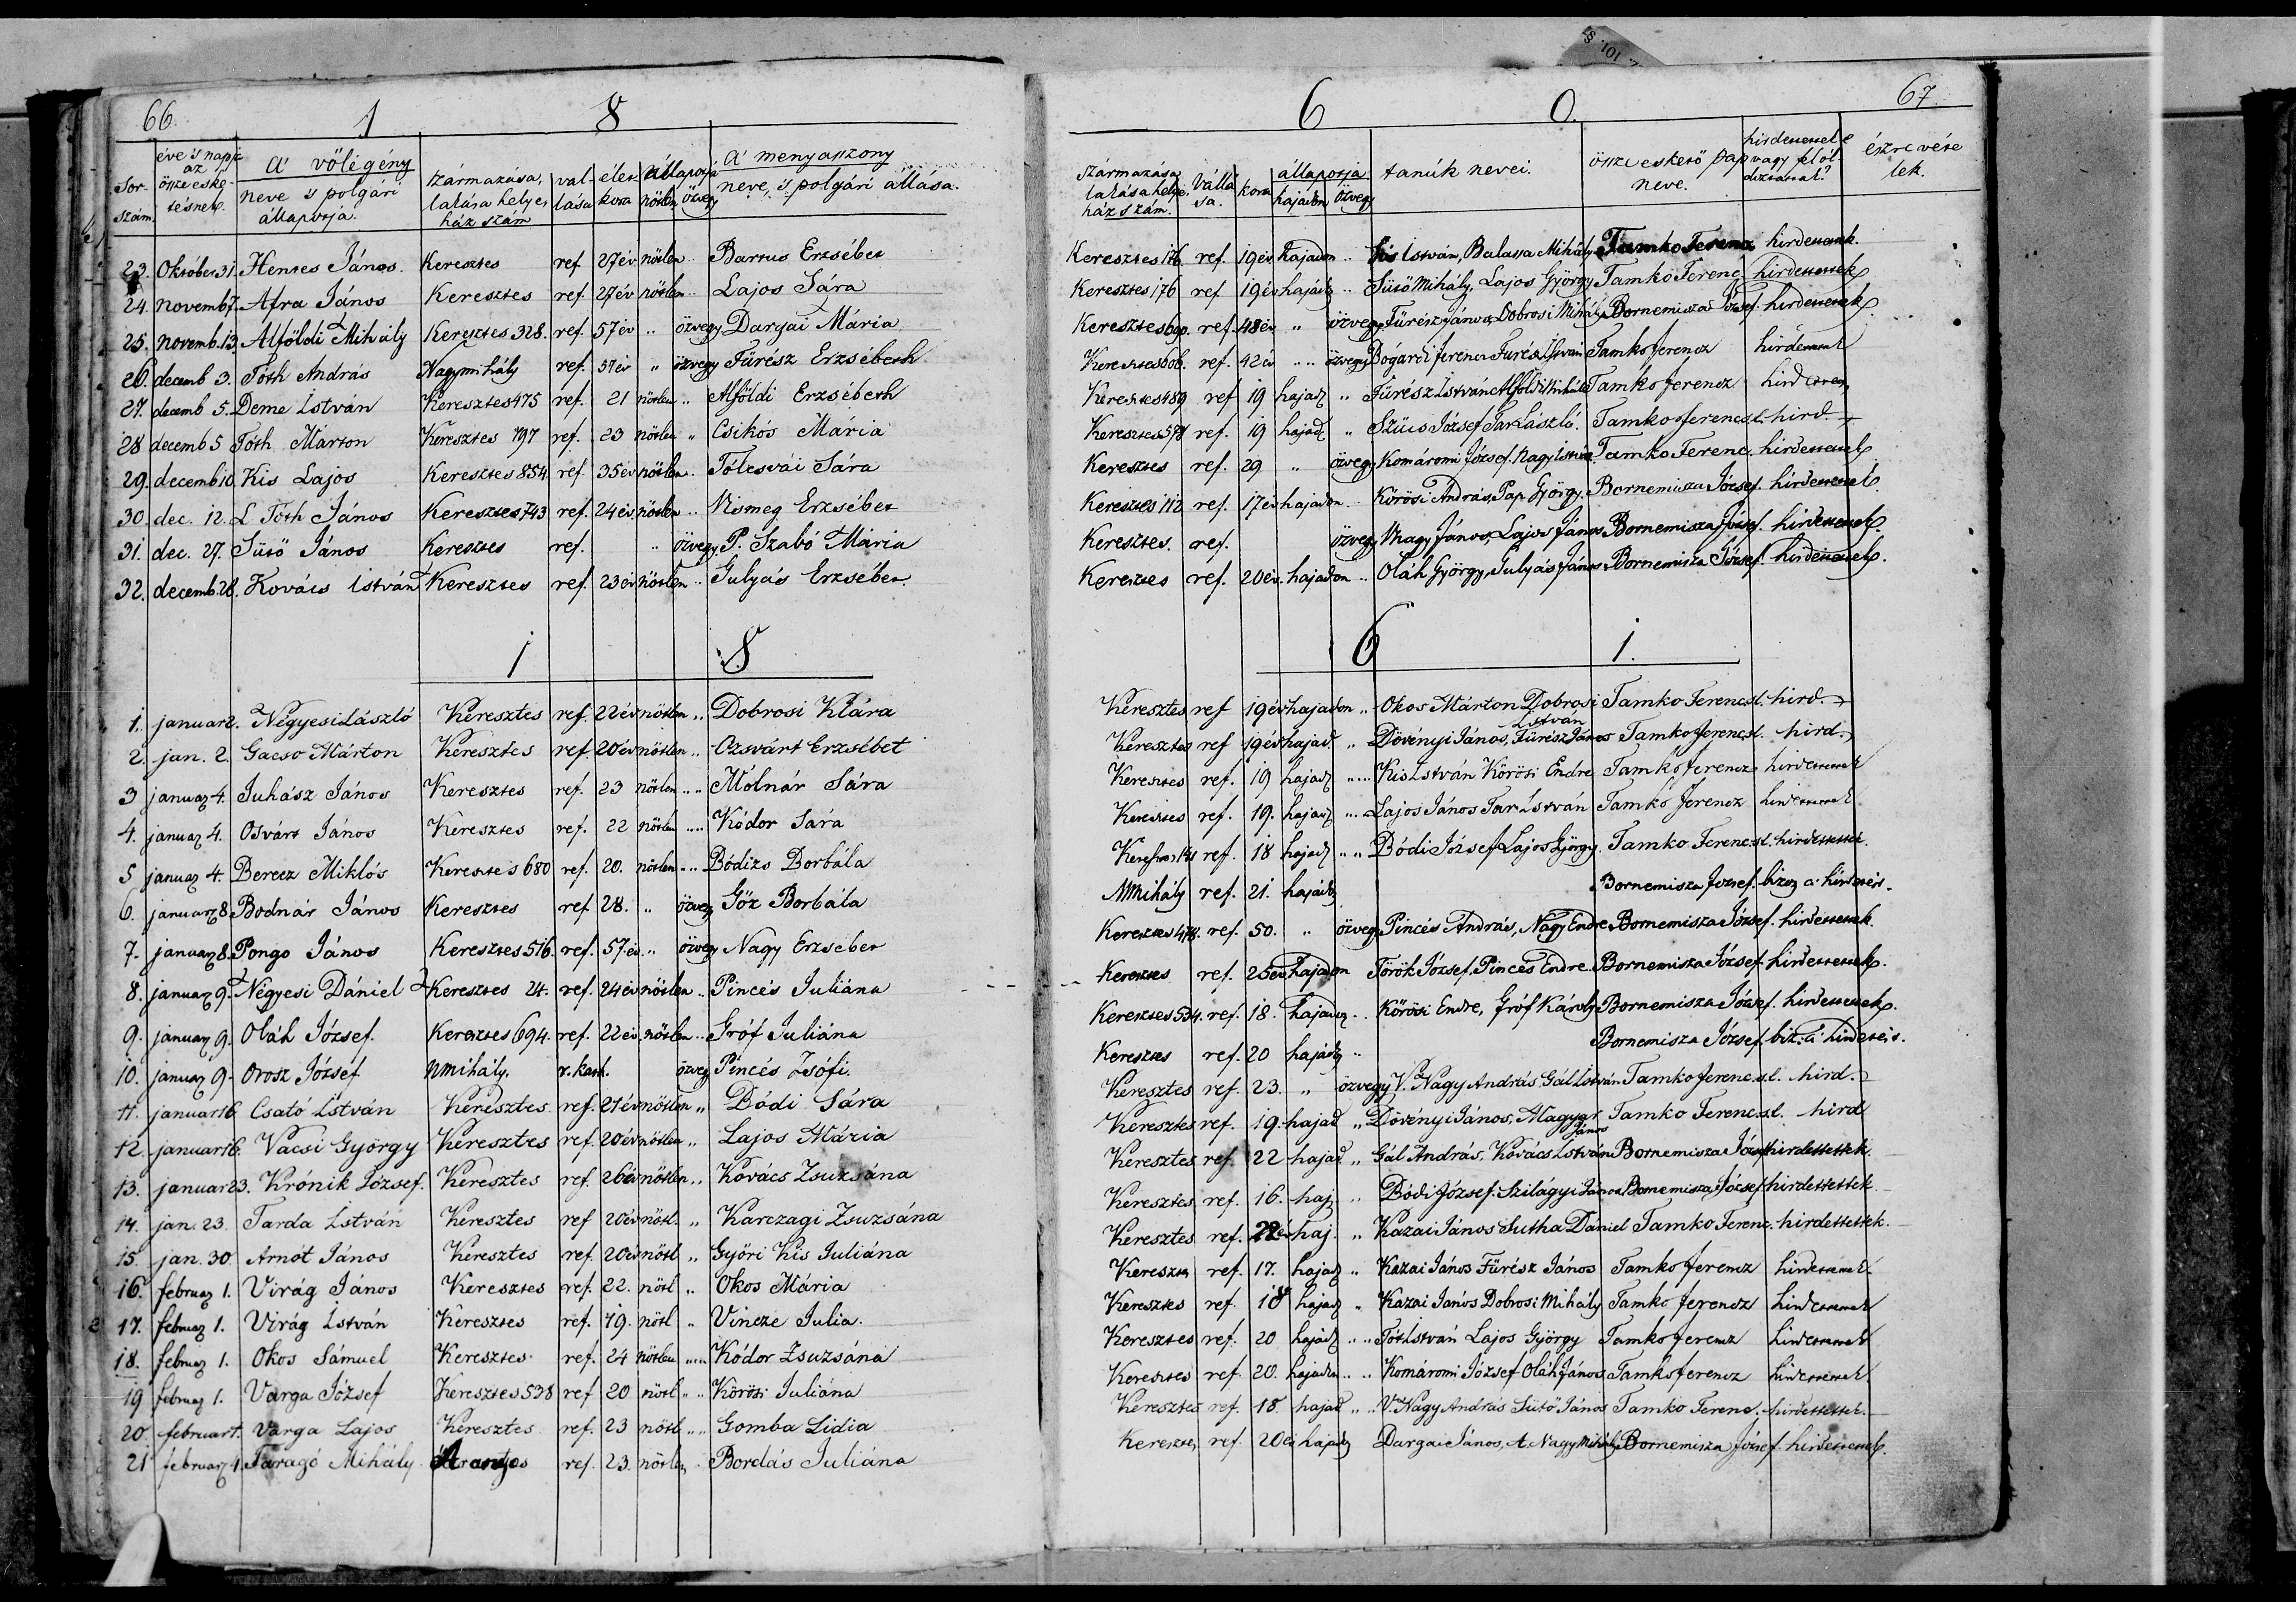 66.
1 8
Sor-szám. éve 's napja az összeesketésnek. a' vőlegény neve 's polgári állapotja. származása, lakása helye, ház szám vallása élet kora állapotja nőtlen özvegy a' menyasszony neve, 's polgári állása.
23. Október 31. Hentes János. Keresztes ref 27 év nőtlen „ Bartus Erzsébet
24. novemb 7. Afra János Keresztes ref. 27 év nőtlen „ Lajos Sára
25. novemb. 13. Alföldi Mihály Keresztes 328. ref. 57 év „ özvegy Daryai Mária
26. decemb 3. Tóth András Nagymihály ref. 57 év „ özvegy Fürész Erzsébeth
27. decemb 5. Deme István Keresztes 475 ref. 21 nőtlen „ Alföldi Erzsébeth
28 decemb 5 Tóth Márton Keresztes 797 ref. 23 nőtlen „ Csikós Mária
29. decemb 10. Kis Lajos Keresztes 854. ref. 35 év nőtlen. Tólcsvái Sára
30. dec. 12. L Tóth János Keresztes 743 ref. 24 év. nőtlen „ Nismeg Erzsébet
31. dec. 27. Sütő János Keresztes ref. „ özvegy. P. Szabó Mária
32. decemb. 28. Kovács István Keresztes ref. 23 év nőtlen „ Gulyás Erzsébet.
1 8
1. januar 2. Négyesi László Keresztes ref. 22 év nőtlen „ Dobrosi Klára
2. jan. 2. Gacso Márton Keresztes ref. 20 év nőtlen „ Ozsvárt Erzsébet
3 januar 4. Juhász János Keresztes ref. 23 nőtlen „ Mólnár Sára
4. januar 4. Osvárt János Keresztes ref. 22 nőtlen „ Kódor Sára
5 januar 4. Berecz Miklós Keresztes 680 ref. 20. nőtlen „ Bódizs Borbála
6. januar 8. Bodnár János Keresztes ref. 28. „ özvegy Göz Borbála
7. januar 8. Pongo János Keresztes 516. ref. 57 év. „ özvegy Nagy Erzsébet
8. januar 9. Négyesi Dániel Keresztes 24. ref. 24 év nőtlen „ Pincés Juliána
9. januar 9. Oláh József. Keresztes 694. ref. 22 év. nőtlen „ Gróf Juliána
10. januar 9. Orosz József Nmihály. r. kath. özvegy Pincés Zsófi.
11. januar 16. Csató István Keresztes ref. 21 év nőtlen „ Bódi Sára
12. januar 16. Vácsi György Keresztes ref. 20 év nőtlen „ Lajos Mária
13. januar 23. Krónik József. Keresztes ref. 26 év nőtlen „ Kovács Zsuzsána
14. jan. 23. Tarda István Keresztes ref 20 év nőtl. „ Karczagi Zsuzsána
15. jan. 30. Arnót János Keresztes ref. 20 év nőtl „ Győri Kis Juliána
16. februar 1. Virág János Keresztes ref. 22. nőtl „ Okos Mária
17. februar 1. Virág István Keresztes ref. 19. nőtl „ Vincze Julia.
18. februar 1. Okos Sámuel Keresztes ref. 24 nőtlen „ Kódor Zsuzsána
19 februar 1. Varga József Keresztes 538 ref 20 nőtl „ Körösi Juliána
20. februar 1. Varga Lajos Keresztes ref. 23 nőtl „ Gomba Lidia
21 februar 1. Faragó Mihály Arantyos ref. 23. nőtlen Bordás Juliána
67.
6 0.
származása lakása helye, ház szám. vallása. kora állapotja hajadon özvegy tanúk nevei. össze eskető pap neve. hirdettettek vagy felóldoztattak? észrevételek.
Keresztes 176. ref. 19 év hajadon „ Kis István, Balassa Mihály Tamko Ferencz hirdettettek.
Keresztes 176 ref 19 év hajadon „ Sütő Mihály, Lajos György Tamko Ferenc. hirdettettek
Keresztes 690. ref. 48 év „ özvegy Fürész János, Dobrosi Mihály Bornemisza József. hirdettettek.
Keresztes 606. ref. 42 év „ özvegy Bógárdi Ferencz Furész István Tamko Ferencz hirdettettek
Keresztes 489 ref 19 hajad „ Fürész István Alföldi Mihály Tamko Ferencz hirdettettek
Keresztes 578 ref. 19 hajad „ Szűcs József Tar László. Tamko Ferencz s.l. hird.
Keresztes ref. 29 „ özvegy Komáromi József. Nagy István. Tamko Ferenc. hirdettettek
Keresztes 112 ref. 17 év hajadon „ Körösi András, Pap György. Bornemisza József. hirdettettek.
Keresztes. ref. özvegy Nagy János, Lajos János Bornemisza József. hirdettettek.
Keresztes ref. 20 év. hajadon „ Oláh György, Gulyás János Bornemisza József. hirdettettek.
6 1.
Keresztes ref 19 év hajadon „ Okos Márton Dobrosi István Tamko Ferenc s.l. hird.
Keresztes ref 19 év hajad „ Dövényi János, Fürész János Tamko Ferenc s.l. hird.
Keresztes ref. 19 hajad „ Kis István Körösi Endre Tamko Ferencz hirdettettek
Keresztes ref. 19. hajad „ Lajos János Tar István Tamko Ferencz hirdettettek
Keresztes ref. 18 hajad „ Bódi József Lajos György. Tamko Ferenc s.l. hirdettettek.
NMihály ref. 21. hajad Bornemisza József. biz. a' hirdetésr.
Keresztes 478. ref. 50. „ özvegy Pincés András, Nagy Endre Bornemisza József. hirdettettek.
Keresztes ref. 25 év hajadon Török József, Pincés Endre. Bornemisza József. hirdettettek.
Keresztes 534. ref. 18. hajadon „ Körösi Endre, Gróf Károly Bornemisza József. hirdettettek.
Keresztes ref. 20 hajad „ Bornemisza József. biz. a' hirdetés.
Keresztes ref. 23. „ özvegy V. Nagy András Gál István Tamko Ferenc. s.l. hird.
Keresztes ref. 19. hajad „ Dövényi János, Magyar János Tamko Ferenc. s.l. hird
Keresztes ref. 22 hajad. „ Gál András, Kovács István Bornemisza József hirdettettek.
Keresztes ref. 16. haj „ Bódi József. Szilágyi János, Bornemisza József hirdettettek.
Keresztes ref. 22 év haj. „ Kazai János Sutha Dániel Tamko Ferenc. hirdettettek.
Keresztes ref. 17. hajad „ Kazai János Fürész János Tamko Ferencz hirdettettek.
Keresztes ref. 18 hajad „ Kazai János Dobrosi Mihály Tamko Ferencz hirdettettek
Keresztes ref. 20 hajad „ Tót István Lajos György Tamko Ferencz hirdettettek
Keresztes ref. 20. hajadon „ Komáromi József Oláh János Tamko Ferencz hirdettettek.
Keresztes ref. 18. hajad „ V. Nagy András Sütő János Tamko Ferenc. hirdettettek.
Keresztes ref. 20 év hajad Dargai János, A. Nagy Mihály Bornemisza József. hirdettettek.